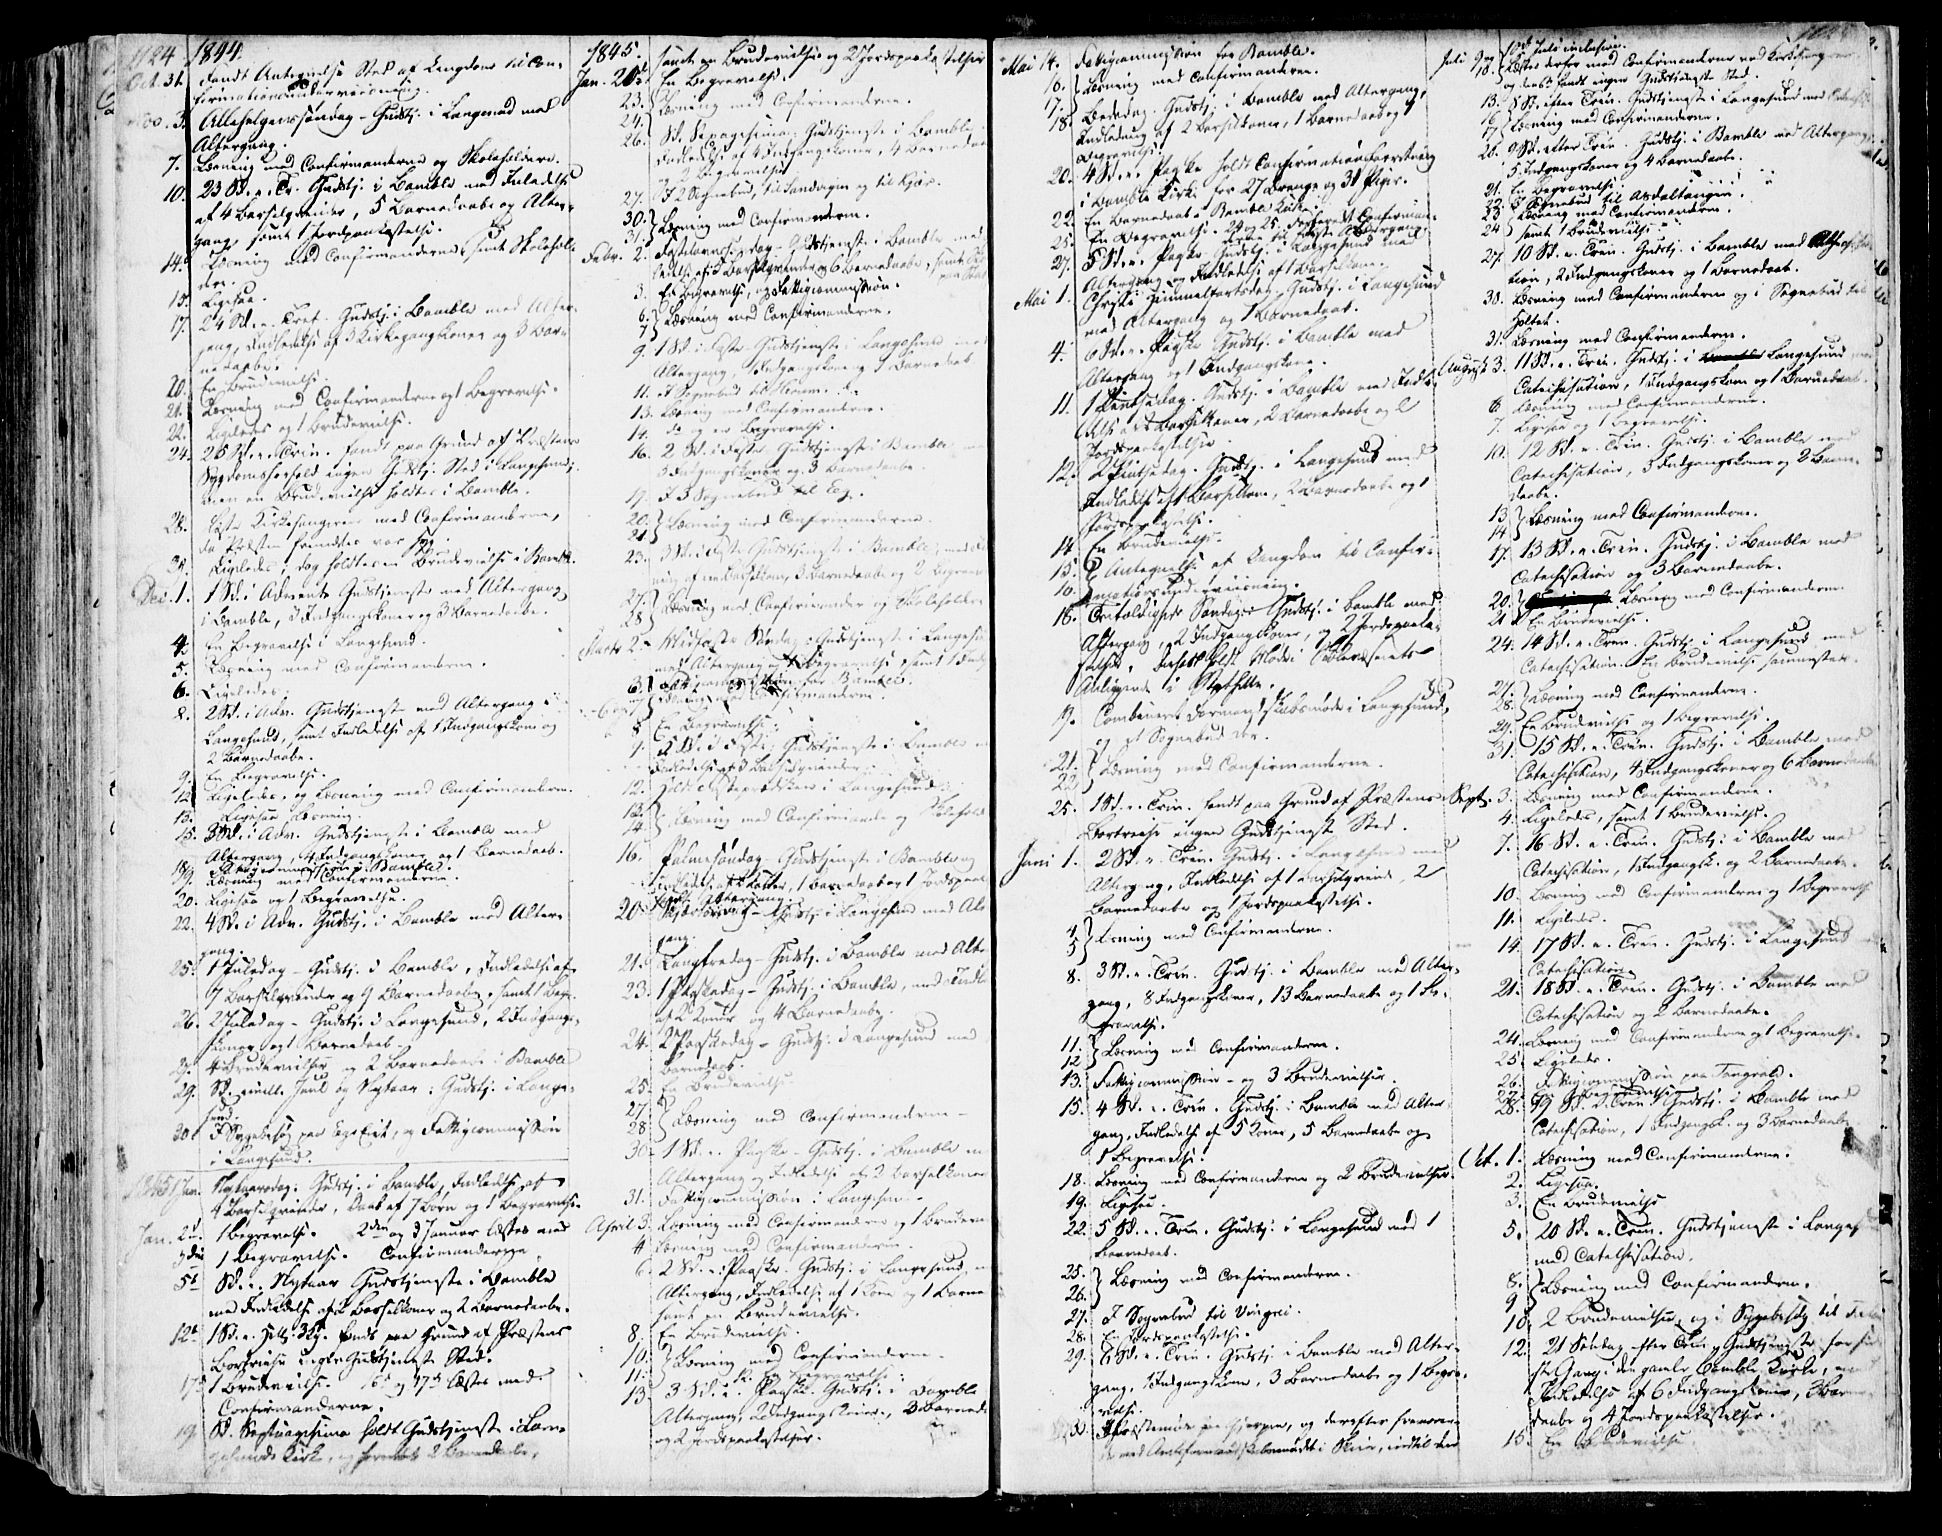 1844.
Oct. 31. fandt Antegnelse Sted af Ungdom til Con-
firmationsunderviisning.
Nov. 3. Allehelgenssøndag - Gudstj. i Langesund med
Altergang.
7. Læsning med Confirmanderne og Skoleholdere.
10. 23 Sd. e. Tr. Gudstj. i Bamble med Indledelse
af 4 Barselqvinder, 5 Barnedaabe og Alter-
gang, samt 1 Jordpaakastelse.
14. Læsning med Confirmanderne samt Skolehol-
dere.
15. Ligesaa.
17. 24 Sd. e. Tref. Gudstj. i Bamble med Alter-
gang, Indledelse af 3 Kirkegangskoner og 3 Bar-
nedaabe.
20. En Brudevielse.
21. Læsning med Confirmanderne og 1 Begravelse.
22. Ligeledes og 1 Brudevielse.
24. 25 Sd. e. Trin. fandt paa Grund af Præstens
Sygdomsforfald ingen Gudstj. Sted i Langesund;
men en Brudevielse holdtes i Bamble.
28. læste Kirkesangeren med Confirmanderne,
da Præsten fremdeles var syg.
Ligeledes, dog holdtes en Brudevielse i Bamble.
Dec. 1. 1 Sd. i Advents Gudstjeneste med Altergang
i Bamble, 3 Indgangskoner og 3 Barnedaabe.
4. En Begravelse i Langesund.
5. Læsning med Confirmanderne.
6. Ligeledes.
8. 2 Sd. i Adv. Gudstjeneste med Altergang i
Langesund, samt Indledelse af 1 Indgangskone og
2 Barnedaabe.
9. En Begravelse.
12. Ligeledes, og Læsning med Confirmanderne.
13. Ligesaa Læsning.
15. 3 Sd. i Adv. Gudstjeneste i Bamble med
Altergang, 4 Indgangskoner og 1 Barnedaab.
18. Fattigcommission i Bamble.
19. Læsning med Confirmanderne.
20. Ligesaa og 1 Begravelse.
22. 4 Sd. i Adv. Gudstj. i Bamble med Alter-
gang.
25. 1 Juledag - Gudstj. i Bamble, Indledelse af
7 Barselqvinder og 9 Barnedaabe, samt 1 Begr.
26. 2 Juledag - Gudstj. i Langesund, 2 Indgangs-
koner og 1 Barnedaab.
27. 4 Brudevielser og 2 Barnedaabe i Bamble
29. Sd. mell. Juul og Nytaar: Gudstj. i Lange-
sund.
30. I Sygebesøg paa Eeg Eiet, og Fattigcommission
i Langesund.
1845 Jan. Nytaarsdag: Gudstj. i Bamble, Indledelse af
4 Barselqvinder, Daab af 7 Børn og 1 Begravelse.
Jan. 2d. 1 Begravelse. 2den og 3 Januar læstes med
3die 1 Begravelse. Confirmanderne.
5t Sd. e. Nytaar Gudstjeneste i Bamble
med Indledelse af 2 Barselkoner og 2 Barnedaabe.
12t 1 Sd. e. Hell. 3 Kg. fandt paa Grund af Præstens
Bortreise ingen Gudstjeneste Sted.
17. 1 Brudevielse. 16d og 17d læstes med
Confirmanderne.
19. Sd. Septuagesima holdt Gudstjeneste i Lan-
gesunds Kirke, og foretoges 2 Barnedaabe,
1845. samt en Brudevielse og 2 Jordpaakastelser
Jan. 20d. En Begravelse.
23.
24. Læsning med Confirmanderne.
26. Sd. Sexagesima: Gudstjeneste i Bamble,
Indledelse af 4 Indgangskoner, 4 Barnedaabe
og 2 Begravelser
27. I 2 Sognebud, til Sandvigen og til Kjær.
30.
31. Læsning med Confirmanderne.
Febr. 2. Fastelavnssøndag - Gudstjeneste i Bamble, med
3. En Begravelse, og Fattigcommission.
6.
7. Læsning med Confirmanderne.
9. 1 Sd. i Faste - Gudstjeneste i Langesund med
Altergang, 1 Indgangskone og 1 Barnedaab
11. I Sognebud
13. Læsning med Confirmanderne.
14. do og en Begravelse.
16. 2 Sd. i Faste, Gudstjeneste i Bamble
3 Indgangskoner og 3 Barnedaabe.
17. I 3 Sognebud til Eeg.
20.
21. Læsning med Confirmanderne
23. 3 Sd. i Faste Gudstjeneste i Bamble, med
27.
28. Læsning med Confirmander og Skoleholdere
Marts 2. Midfaste Søndag: Gudstjeneste i Langesund
med Altergang og 1 Begravelse, samt 1 Indg.
3. Fattigcommission for Bamble.
6 og 7. Læsning med Confirmanderne.
8. En Begravelse.
9. 5 Sd. i Faste: Gudstjeneste i Bamble
Indledelse af 3 Barselqvinder.
12. Holdt Fasteprædiken i Langesund.
13.
14. Læsning med Confirmanderne og Skoleholdere
16. Palmesøndag - Gudstjeneste i Bamble og
20. Skjærtorsdag - Gudstj. i Langesund med Alter-
gang.
21. Langfredag - Gudstj. i Bamble med Alterg.
23. 1 Paaskedag - Gudstj. i Bamble, med Indled.
af 2 Koner og 4 Barnedaabe.
24. 2 Paaskedag - Gudstj. i Langesund med
Barnedaab.
25. En Brudevielse
27.
28. Læsning med Confirmanderne -
30. 1 Sd. e. Paaske - Gudstj. i Bamble m
Altergang og Indledelse af 2 Barselkoner
31. Fattigcommission i Langesund.
April 3. Læsning med Confirmanderne og 1 Brudev.
4. Læsning med Confirmanderne.
6. 2 Sd. e. Paaske. Gudstj. i Langesund, m
Altergang, Indledelse af 1 Kone og 1 Barne
samt en Brudevielse.
8. En Brudevielse.
10.
11. Læsning med Confirmanderne
13. 3 Sd. e. Paaske. Gudstj. i Bamble
Altergang, 2 Indgangskoner, 3 Barned.
og 2 Jordpaakastelser.
Mai 14. Fattigcommission for Bamble.
16.
17. Læsning med Confirmanderne.
18. Bededag. Gudstj. i Bamble med Altergang,
Indledning af 2 Barselkoner, 1 Barnedaab og 1
Begravelse.
20. 4 Sd. e. Paaske holdt Confirmationsforretning
i Bamble Kirke for 27 Drenge og 31 Piger.
22. En Barnedaab i Bamble Kirke.
25. En Begravelse.
27. 5 Sd. e. Paaske Gudstj. i Langesund med
Altergang og Indledelse af 1 Barselkone.
Mai 1. Christi Himmelfartsdag. Gudstj. i Langesund
med Altergang og 1 Barnedaab.
4. 6 Sd. e. Paaske Gudstj. i Bamble med
Altergang og 1 Indgangskone.
11. 1 Pintsedag. Gudstj. i Bamble med Indle-
delse af 2 Barselkoner, 2 Barnedaabe og 2
Jordpaakastelser.
12. 2 Pintsedag. Gudstj. i Langesund med
Indledelse af 1 Barselkone, 2 Barnedaabe og 1
Jordpaakastelse.
14. En Brudevielse.
15.
16. Antegnelse af Ungdom til Confir-
mationsunderviisning.
18. Trefoldigheds Søndag: Gudstj. i Bamble med
Altergang, 2 Indgangskoner, og 2 Jordpaaka-
stelser. Dernæst holdt Møde i Skolevæsenets
Anliggende i Stathelle.
19. Combineret Formandskabsmøde i Langesund,
og et Sognebud der.
21.
22. Læsning med Confirmanderne.
25. 1 Sd. e. Trin. fandt paa Grund af Præstens
Bortreise ingen Gudstjeneste Sted.
Juni 1. 2 Sd. e. Trin. Gudstj. i Langesund med
Altergang, Indledelse af 1 Barselqvinde, 2
Barnedaabe og 1 Jordpaakastelse.
4.
5. Læsning med Confirmanderne.
8. 3 Sd. e. Trin. Gudstj. i Bamble med Alter-
gang, 8 Indgangskoner, 13 Barnedaabe og 1 Be-
gravelse.
11.
12. Læsning med Confirmanderne.
13. Fattigcommission - og 3 Brudevielser.
15. 4 Sd. e. Trin. Gudstj. i Bamble med Alter-
gang, Indledelse af 5 Koner, 5 Barnedaabe og
1 Begravelse.
18. Læsning med Confirmanderne og 2 Brudevielser.
19. Ligesaa.
22. 5 Sd. e. Trin. Gudstj. i Langesund med 1
Barnedaab.
25.
26. Læsning med Confirmanderne.
27. I Sognebud til Vingrei.
28. En Jordpaakastelse.
29. 6 Sd. e. Trin. Gudstj. i Bamble med Alter-
gang, 1 Indgangskone, 3 Barnedaabe og 1 Begra-
velse.
30. I Præstemøde paa Gjerpen, og derefter
Juli 9 og 10. Læstes derfor med Confirmanderne ved Kirkesangeren
og den 6te fandt ingen Gudstjeneste Sted.
13. 8 Sd. efter Trin. Gudstjeneste i Langesund med Catech.
16.
17. Læsning med Confirmanderne.
20. 9 Sd. efter Trin. Gudstj. i Bamble med Altergang,
3 Indgangskoner og 4 Barnedaabe.
21. En Begravelse.
22. I Sognebud til Asdaltangen.
23. Læsning med Confirmanderne.
24. samt 1 Brudevielse
27. 10 Sd. e. Trin. Gudstj. i Bamble med Catechisa-
tion, 2 Indgangskoner og 1 Barnedaab.
30. Læsning med Confirmanderne og i Sognebud til
Holtet.
31. Læsning med Confirmanderne.
August 3. 11 Sd. e. Trin. Gudstj. i Langesund med
Catechisation, 1 Indgangskone og 1 Barnedaab.
6. Læsning med Confirmanderne.
7. Ligesaa og 1 Begravelse.
10. 12 Sd. e. Trin. Gudstj. i Bamble med
Catechisation, 3 Indgangskoner og 2 Barne-
daabe.
13.
14. Læsning med Confirmanderne.
17. 13 Sd. e. Trin. Gudstj. i Bamble med
Catechisation og 3 Barnedaabe.
20. Læsning med Confirmanderne
21. En Brudevielse.
24. 14 Sd. e. Trin. Gudstj. i Langesund med
Catechisation. En Brudevielse sammesteds.
27.
28. Læsning med Confirmanderne.
29. En Brudevielse og 1 Begravelse.
31. 15 Sd. e. Trin. Gudstj. i Bamble med
Catechisation, 4 Indgangskoner og 6 Barnedaabe
Sept. 3. Læsning med Confirmanderne.
4. Ligeledes, samt 1 Brudevielse.
7. 16 Sd. e. Trin. Gudstj. i Bamble med
Catechisation, 1 Indgangsk. og 2 Barnedaabe.
10. Læsning med Confirmanderne og 1 Begravelse
11. Ligeledes.
14. 17 Sd. e. Trin. Gudstj. i Langesund
Catechisation.
21. 18 Sd. e. Trin. Gudstj. i Bamble med
Catechisation og 2 Barnedaabe.
24. Læsning med Confirmanderne og 1 Begravelse.
25. Ligeledes.
26. Fattigcommission paa Tangvald.
27. En Brudevielse
28. 19 Sd. e. Trin. Gudstj. i Bamble med
Catechisation, 1 Indgangsk. og 3 Barnedaabe
Oct. 1. Læsning med Confirmanderne.
2. Ligesaa.
3. En Brudevielse
5. 20 Sd. e. Trin. Gudstjeneste i Langesund
med Catechisation.
8.
9. Læsning med Confirmanderne.
10. 2 Brudevielser, og i Sygebesøg til
12. 21 Søndag efter Trin. Gudstjeneste for sid-
ste Gang i den gamle Bamble Kirke,
Indledelse af 6 Indgangskoner, 3 Barne-
daabe og 4 Jordpaakastelser.
15. En Brudevielse